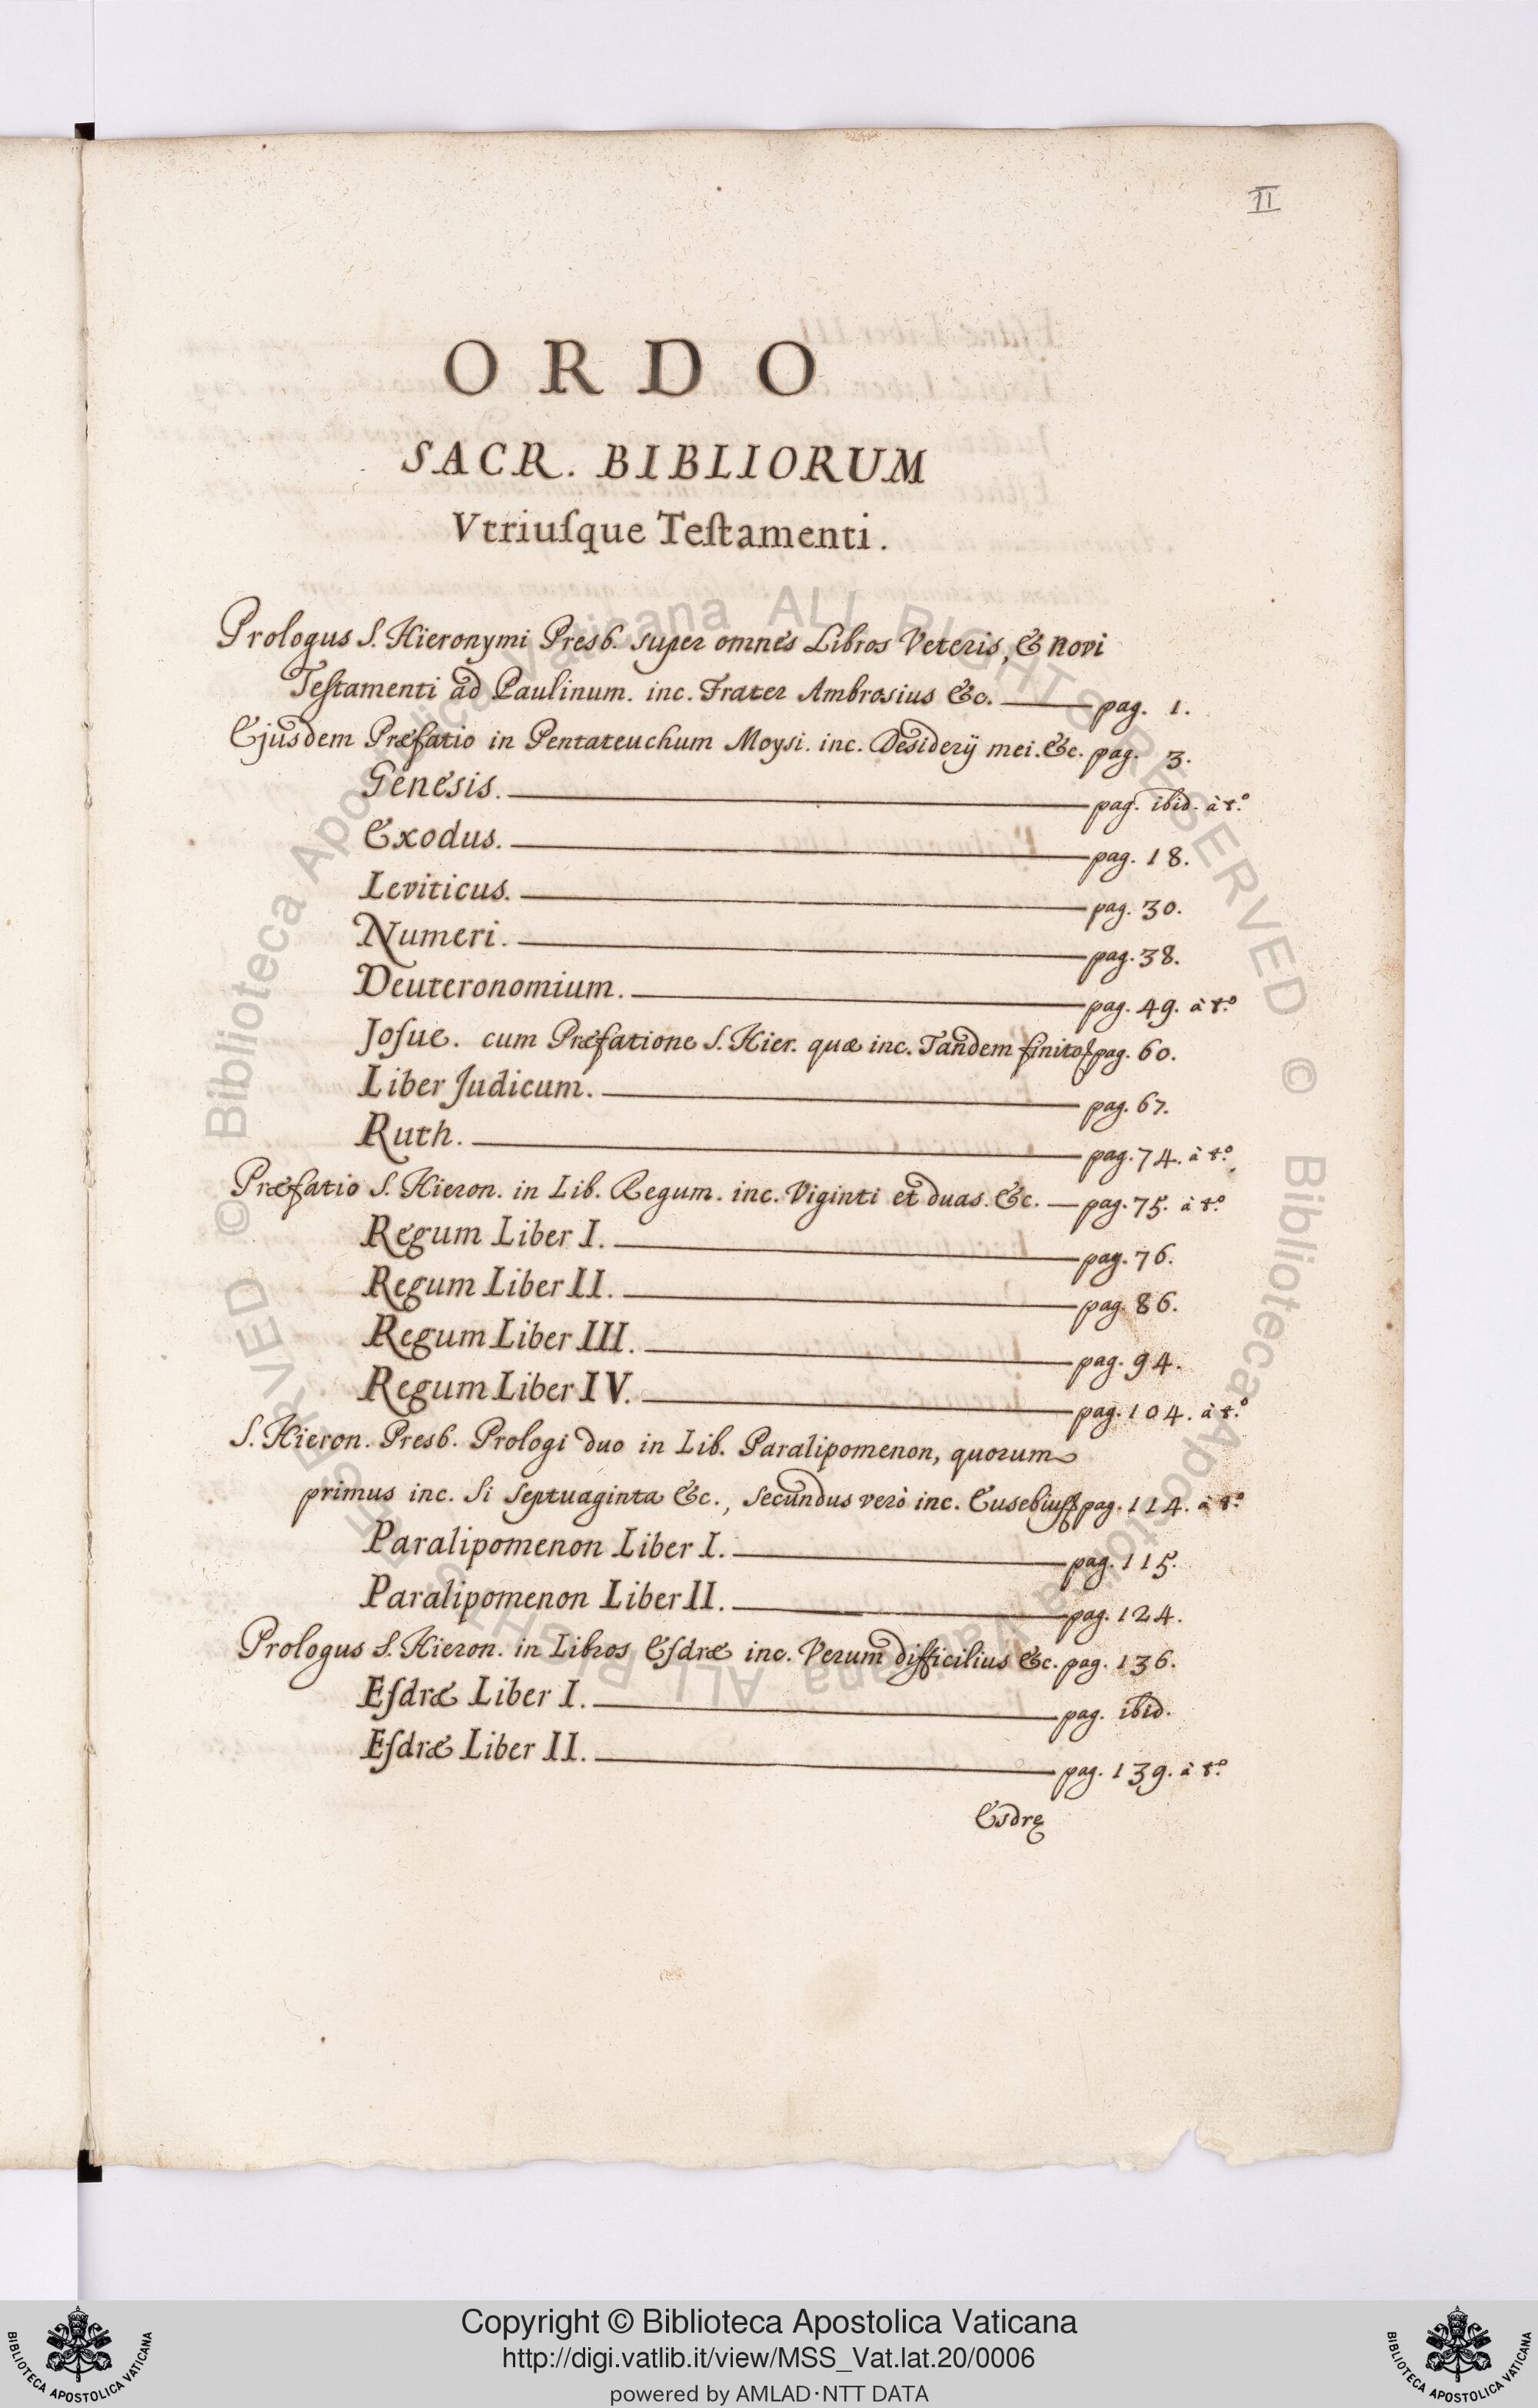 II
ORDO
SACR. BIBLIORUM
Vtriuſque Teſtamenti.
Prologus S. Hieronymi Presb. super omnes Libros Veteris, & novi
Teſtamenti ad Paulinum. inc. Frater Ambrosius &c. pag. 1.
Ejusdem Præfatio in Pentateuchum Moysi. inc. Desiderij mei. &c. pag. 3.
Genesis. pag. ibid. à t.º
Exodus. pag. 18.
Leviticus. pag. 30.
Numeri. pag. 38.
Deuteronomium. pag. 49. à t.º
Joſue. cum Præfatione S. Hier. quæ inc. Tandem finito pag. 60.
Liber Judicum. pag. 67.
Ruth. pag. 74. à t.º
Præfatio S. Hieron. in Lib. Regum. inc. Viginti et duas. &c. pag. 75. à t.º
Regum Liber I. pag. 76.
Regum Liber II. pag. 86.
Regum Liber III. pag. 94.
Regum Liber IV. pag. 104. à t.º
S. Hieron. Presb. Prologi duo in Lib. Paralipomenon, quorum
primus inc. Si Septuaginta &c., Secundus verò inc. Eusebius pag. 114. à t.º
Paralipomenon Liber I. pag. 115.
Paralipomenon Liber II. pag. 124.
Prologus S. Hieron. in Libros Eſdræ inc. Verum difficilius &c. pag. 136.
Eſdræ Liber I. pag. ibid.
Eſdræ Liber II. pag. 139. à t.º
Esdrę
© Biblioteca Apostolica Vaticana ALL RIGHTS RESERVED © Biblioteca Apostolica Vaticana ALL RIGHTS RESERVED
Copyright © Biblioteca Apostolica Vaticana
http://digi.vatlib.it/view/MSS_Vat.lat.20/0006
powered by AMLAD·NTT DATA
BIBLIOTECA APOSTOLICA VATICANA
BIBLIOTECA APOSTOLICA VATICANA